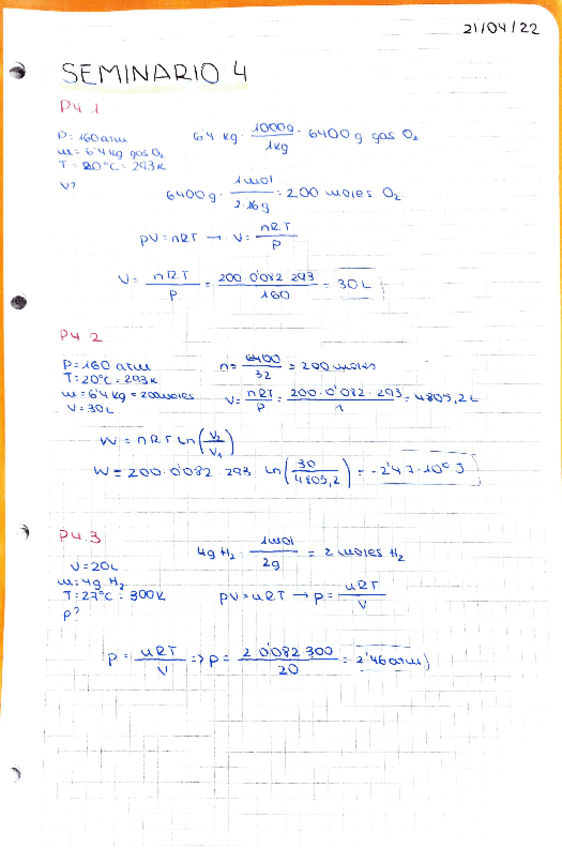 21/04/22
SEMINARIO 4
P4.1
P = 160 atm
m = 6'4 kg gas O₂
T = 20°C = 293 K
V?
6'4 kg · 1000g/1kg = 6400 g gas O₂
6400 g · 1mol/2·16g = 200 moles O₂
PV = nRT → V = nRT/P
V = nRT/P = 200·0'082·293/160 = 30L
P4.2
P = 160 atm
T = 20°C = 293K
m = 6'4 kg = 200 moles
V = 30L
n = 6400/32 = 200 moles
V = nRT/P = 200·0'082·293/1 = 4805,2L
W = nRT Ln(V₂/V₁)
W = 200·0'082·293 Ln(30/4805,2) = -2'47·10⁶ J
P4.3
V = 20L
m = 4g H₂
T = 27°C = 300K
p?
4g H₂ · 1mol/2g = 2 moles H₂
pV = nRT → p = nRT/V
p = nRT/V => p = 2 0'082 300/20 = 2'46 atm